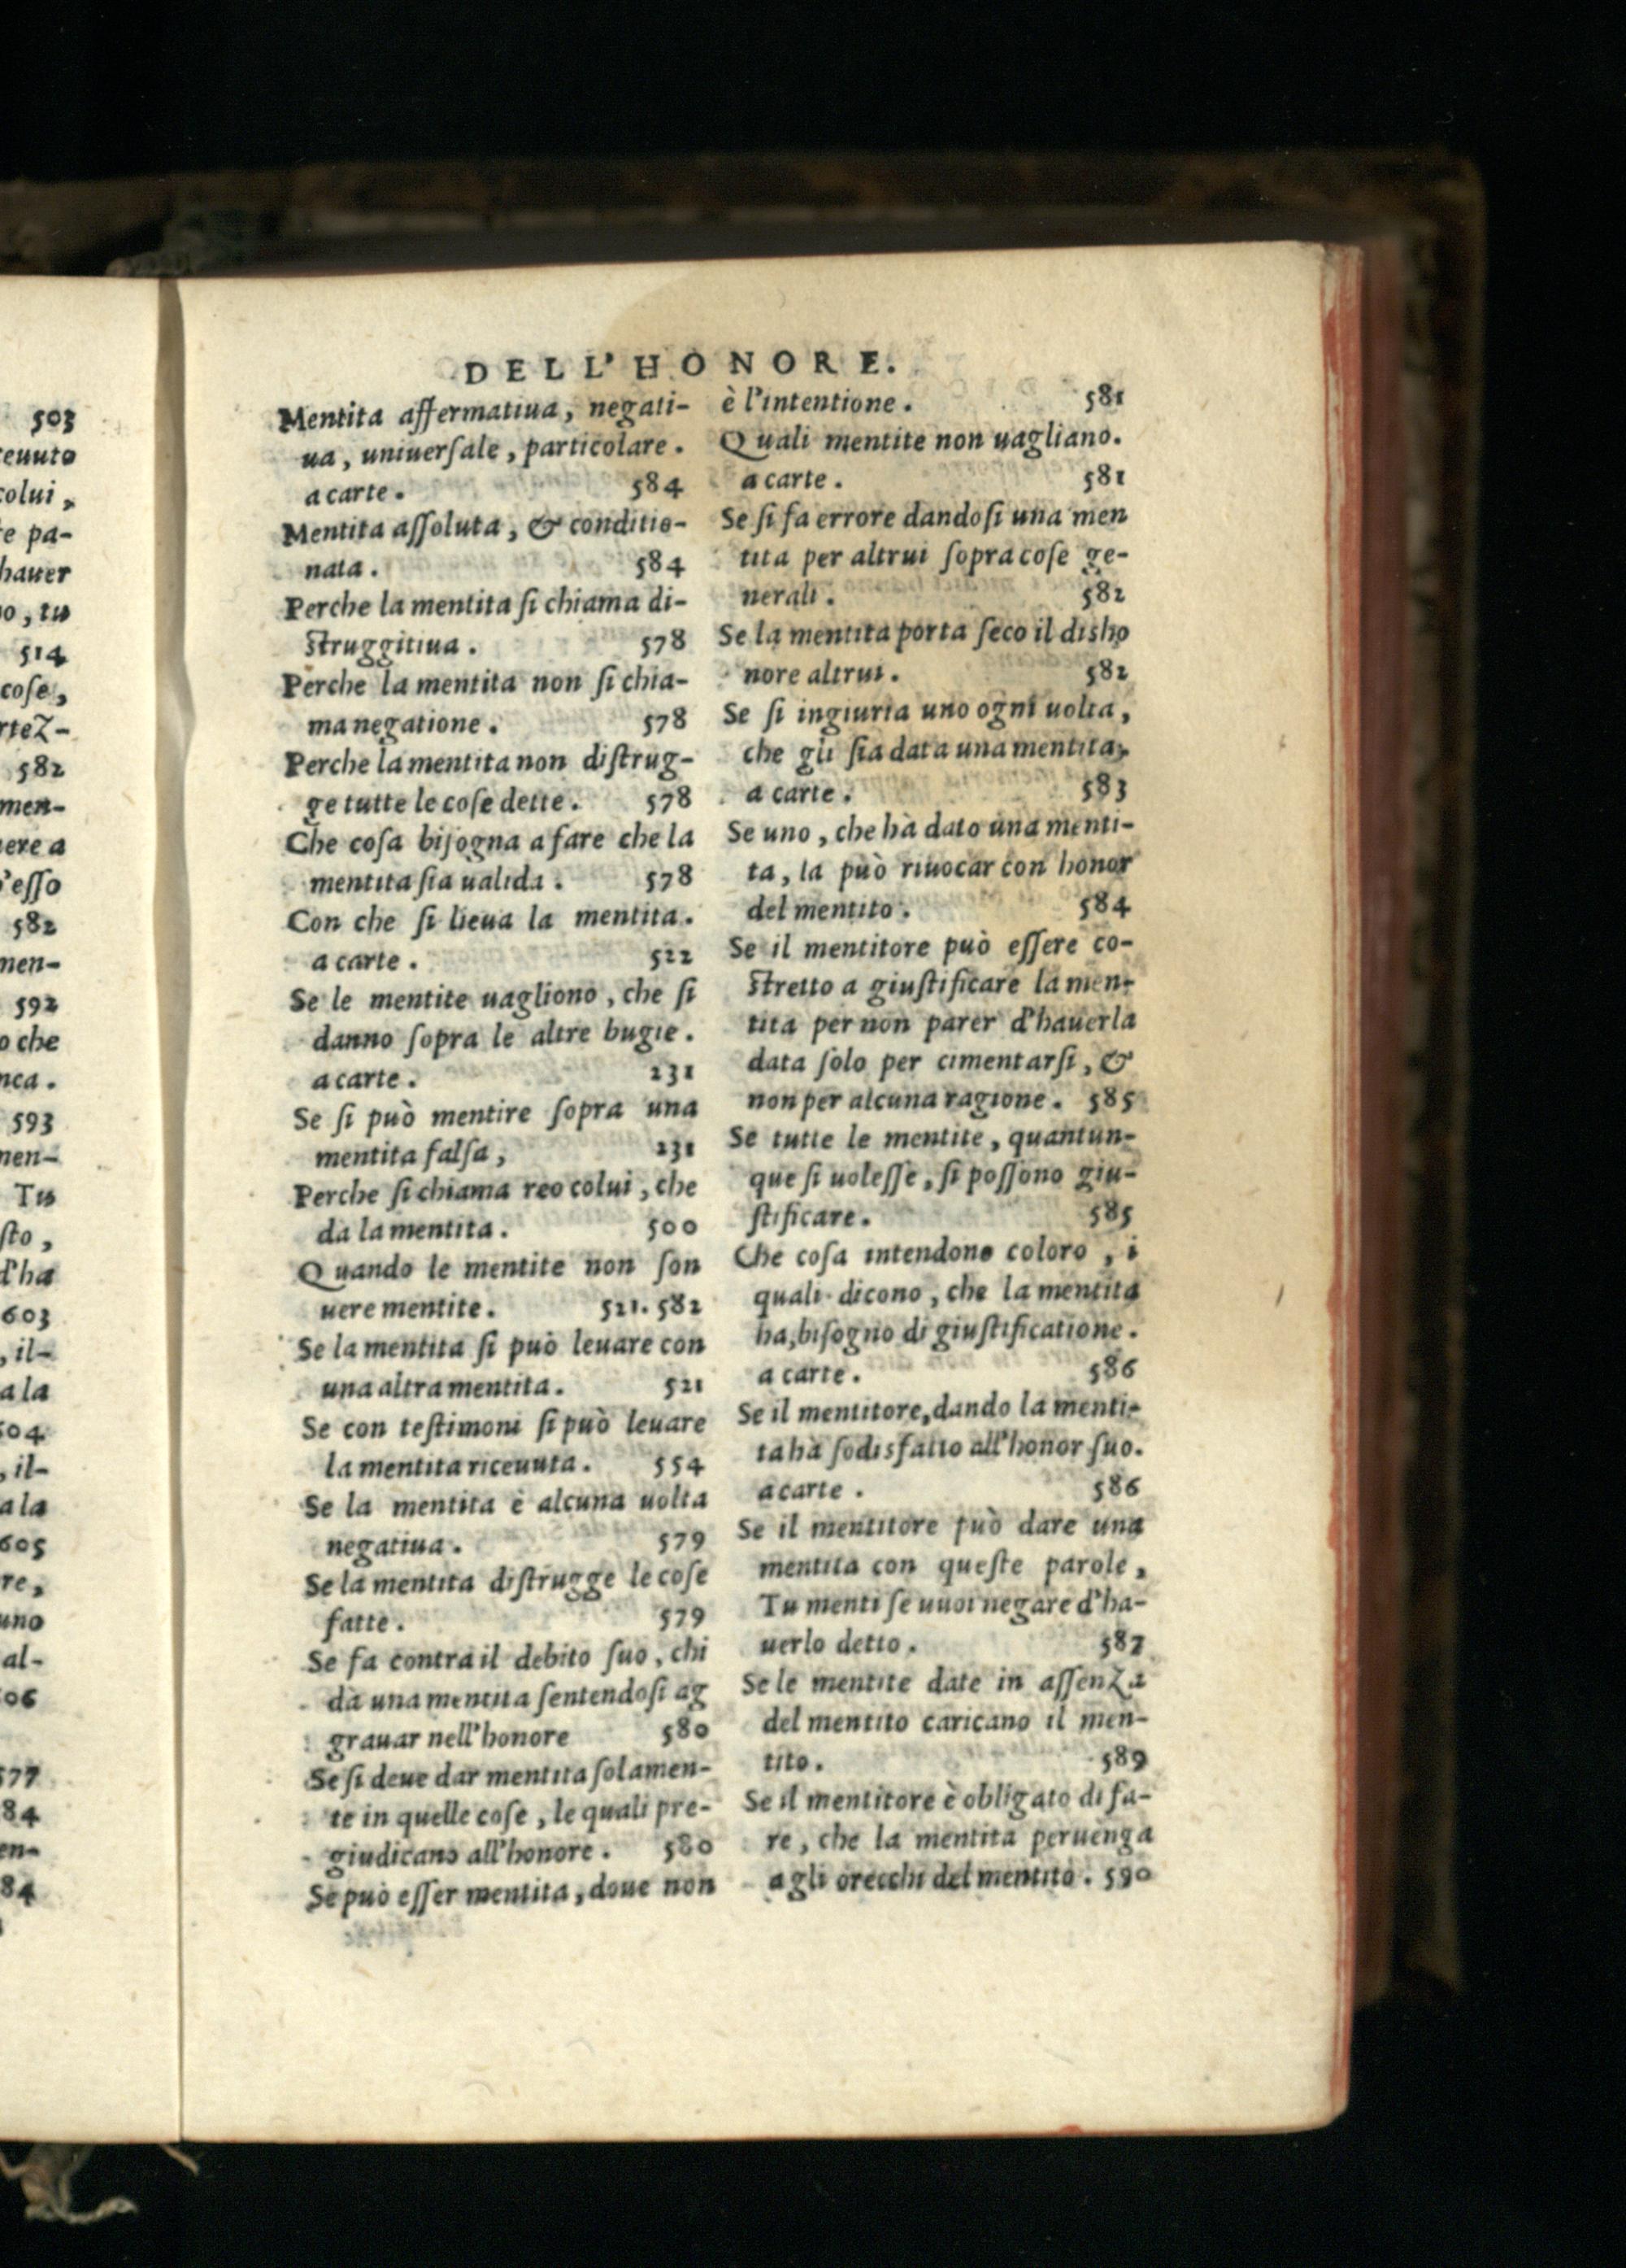 503
tenuto
colui,
re pa-
hauer
no, tu
514
cose,
rtez-
582
men-
uere a
d'esso
582
men-
592
o che
nca.
593
men-
Tu
sto,
d'ha
603
, il-
a la
604
, il-
a la
605
re,
uno
al-
606
577
584
en-
584
DELL'HONORE.
Mentita affermatiua, negati-
ua, uniuerſale, particolare.
a carte. 584
Mentita aſſoluta, & conditio-
nata. 584
Perche la mentita ſi chiama di-
ſtruggitiua. 578
Perche la mentita non ſi chia-
ma negatione. 578
Perche la mentita non diſtrug-
ge tutte le coſe dette. 578
Che coſa biſogna a fare che la
mentita ſia ualida. 578
Con che ſi lieua la mentita.
a carte. 522
Se le mentite uagliono, che ſi
danno ſopra le altre bugie.
a carte. 231
Se ſi può mentire ſopra una
mentita falſa, 231
Perche ſi chiama reo colui, che
da la mentita. 500
Quando le mentite non ſon
uere mentite. 521. 582
Se la mentita ſi può leuare con
una altra mentita. 521
Se con teſtimoni ſi può leuare
la mentita riceuuta. 554
Se la mentita è alcuna uolta
negatiua. 579
Se la mentita diſtrugge le coſe
fatte. 579
Se fa contra il debito ſuo, chi
dà una mentita ſentendoſi ag
grauar nell'honore 580
Se ſi deue dar mentita ſolamen-
te in quelle coſe, le quali pre-
giudicano all'honore. 580
Se può eſſer mentita, doue non
è l'intentione. 581
Quali mentite non uagliano.
a carte. 581
Se ſi fa errore dandoſi una men
tita per altrui ſopra coſe ge-
nerali. 582
Se la mentita porta ſeco il disho
nore altrui. 582
Se ſi ingiuria uno ogni uolta,
che gli ſia data una mentita,
a carte. 583
Se uno, che hà dato una menti-
ta, la può riuocar con honor
del mentito. 584
Se il mentitore può eſſere co-
ſtretto a giuſtificare la men-
tita per non parer d'hauerla
data ſolo per cimentarſi, &
non per alcuna ragione. 585
Se tutte le mentite, quantun-
que ſi uoleſſe, ſi poſſono giu-
ſtificare. 585
Che coſa intendono coloro, i
quali dicono, che la mentita
ha, biſogno di giuſtificatione.
a carte. 586
Se il mentitore, dando la menti-
ta hà ſodisfatto all'honor ſuo.
a carte. 586
Se il mentitore può dare una
mentita con queſte parole,
Tu menti ſe uuoi negare d'ha-
uerlo detto. 587
Se le mentite date in aſſenza
del mentito caricano il men-
tito. 589
Se il mentitore è obligato di fa-
re, che la mentita peruenga
a gli orecchi del mentito. 590